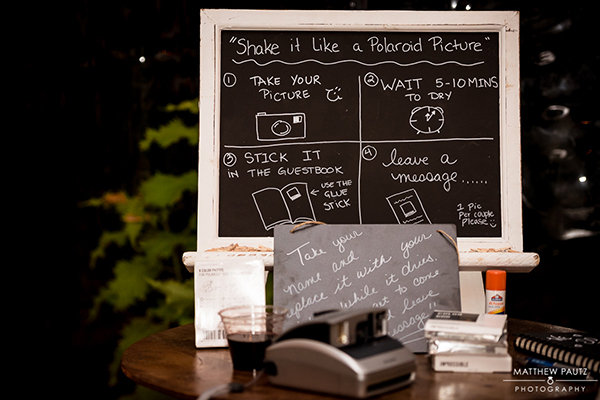 "Shake it Like a Polaroid Picture"
① TAKE YOUR
PICTURE
② WAIT 5-10 MINS
TO DRY
③ STICK IT
IN THE GUESTBOOK
← USE THE
GLUE
STICK
④ leave a
message......
1 Pic
Per couple
please
Take your
name and
place it with your
while it dries.
out to come
leave
message
IMPOSSIBLE
MATTHEW PAUTZ
PHOTOGRAPHY